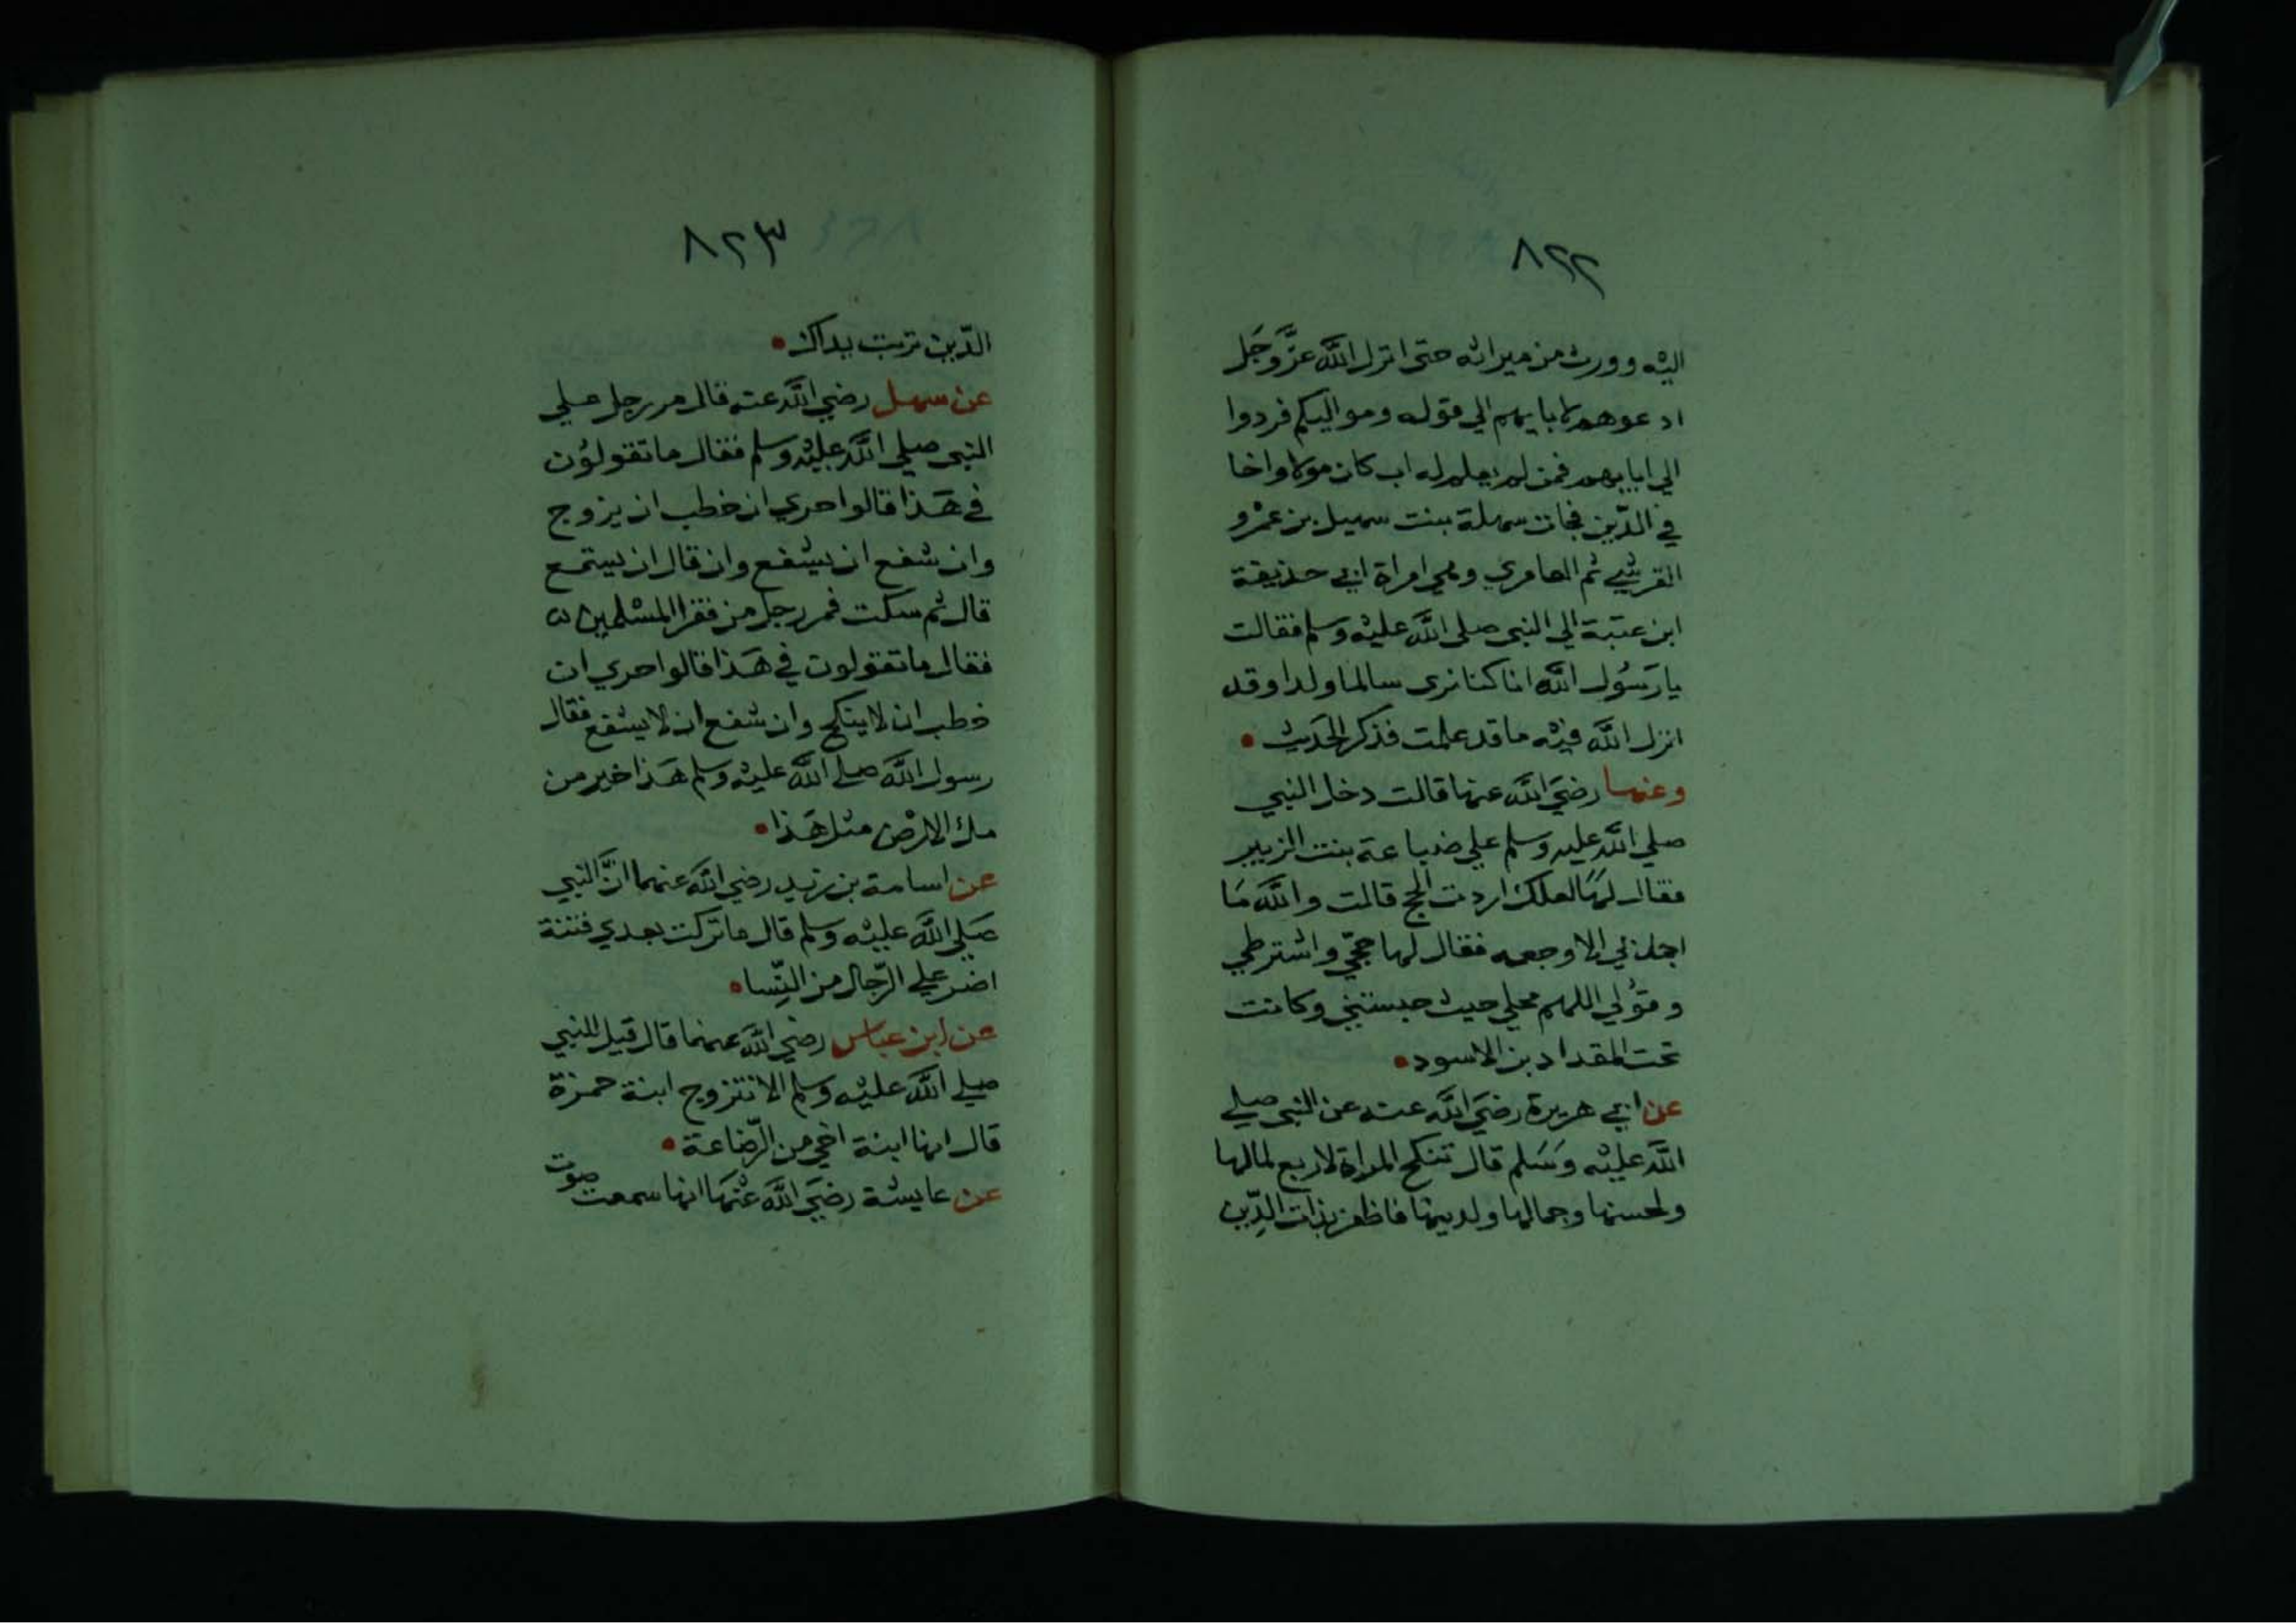 ٨٢٢
اليه وورث من ميراثه حتى انزل الله عزَّ وَجَل
ادعوهم لابايهم الي قوله ومواليكم فردوا
الي ابايهم فمن لم يعلم له اب كان مولا واخا
في الدّين فجات سهلة بنت سهيل بن عمْرو
القرشي ثم العامري وهي امراة ابي حذيفة
ابن عتبة الي النبي صلى الله عليه وسلم فقالت
يا رَسُول الله انا كنا نرى سالما ولدا وقد
انزل الله فيه ما قد علمت فذكر الحَديث •
وعنها رضيَ الله عنها قالت دخل النبي
صلي الله عليه وسلم علي ضباعة بنت الزبير
فقال لهَا لعلك اردت الحج قالت والله مَا
اجدني الا وجعه فقال لها حجّي واشترطي
وقوُلي اللهم محلي حيث حبستني وكانت
تحت المقداد بن الاسود •
عن ابي هريرة رضيَ الله عنه عن النبي صلي
الله عليْه وَسَلم قال تنكح المراة لاربع لمالها
ولحسنها وجمالها ولدينها فاظفر بذات الدِّين
٨٢٣
الدّين تربت يداك •
عن سهل رضي الله عنه قال مر رجل علي
النبي صلي الله عليْه وسلم فقال ما تقولوُن
في هَذا قالوا حري ان خطب ان يزوج
وان شفع ان يشفع وان قال ان يستمع
قال ثم سكت فمر رجل من فقرا المسْلمين
فقال ما تقولون في هَذا قالوا حري ان
خطب ان لا ينكح وان شفع ان لا يشفع فقال
رسول الله صلي الله عليْه وسلم هَذا خير من
ملء الارْض مثل هَذا •
عن اسامة بن زيد رضي الله عنهما انَّ النبي
صَلي الله عليْه وسلم قال ما تركت بعدي فتنة
اضر علي الرّجال من النِّسا •
عن ابن عباس رضي الله عنهما قال قيل للنبي
صلي الله عليْه وسلم الا تتزوج ابنة حمزة
قال انها ابنة اخي من الرّضاعة •
عن عايشة رضيَ الله عنْهَا انها سمعت صوت